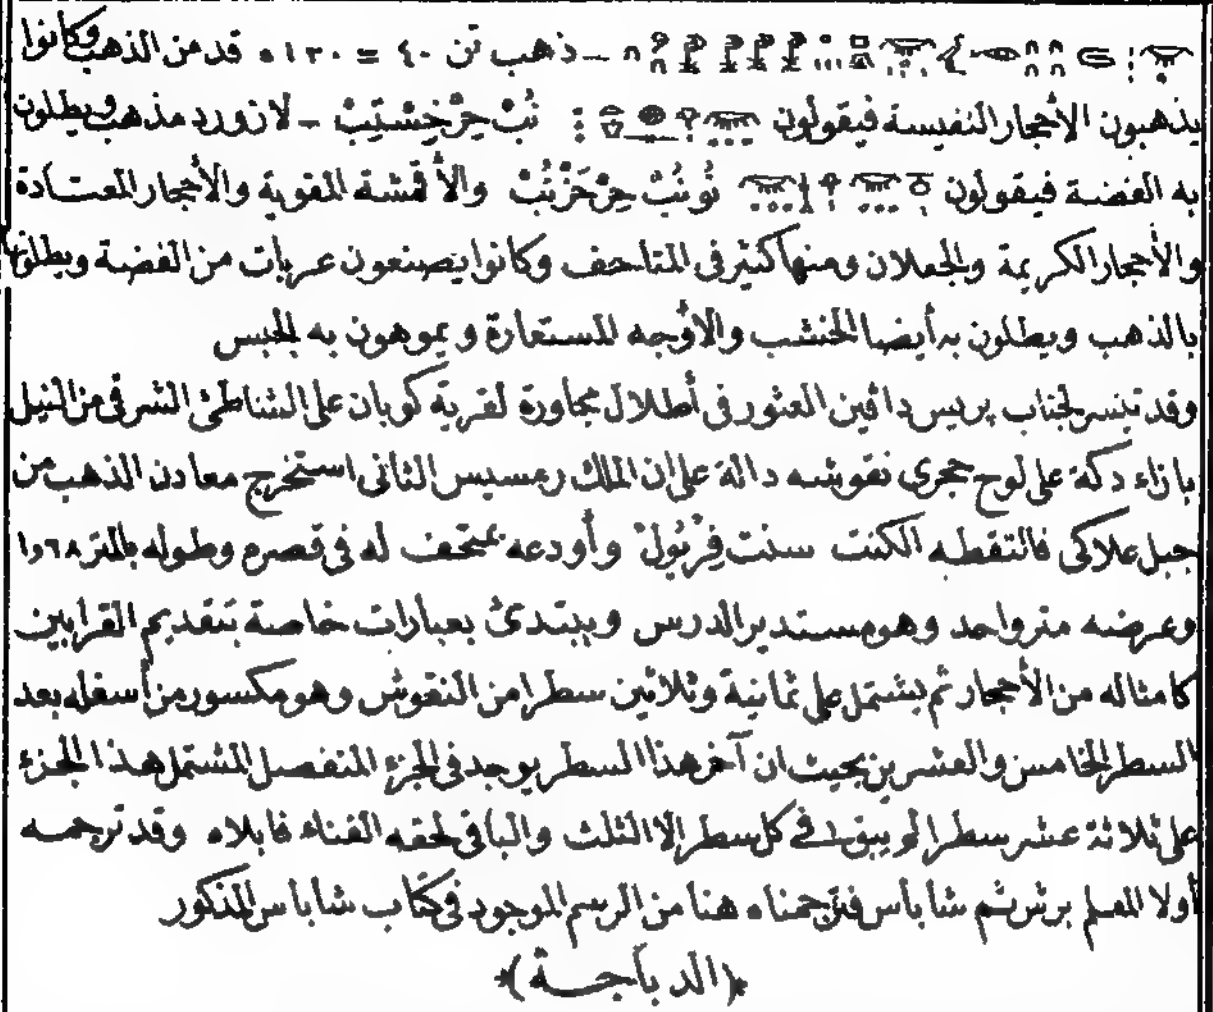 ـ ذهب تن ٤٠ = ١٣٠ ٥ قد من الذهب وكانوا
يذهبون الأحجار النفيسة فيقولون نُبْ حِرْخِسْتِيبْ ـ لازورد مذهب ويطلون
به الفضة فيقولون نُوبُبْ حِرْحَزْنُبْ والأقشة المقوية والأحجار المعتادة
والأحجار الكريمة والجعلان ومنها كثير فى المتاحف وكانوا يصنعون عربات من الفضة ويطلونها
بالذهب ويطلون به أيضا الخشب والاوجه المستعارة ويموهون به الجبس
وقد تيسر لجناب بريس دافين العثور فى أطلال مجاورة لقرية كوبان على الشاطئ الشرقى من النيل
بازاء دكة على لوح حجرى نقوشه دالة على ان الملك رمسيس الثانى استخرج معادن الذهب من
جبل علاكى فالتقطه الكنت سنت فِرْيُولْ وأودعه بمتحف له فى قصره وطوله بالمتر ١٫٦٨
وعرضه متر واحد وهو مستدير الدرس ويبتدئ بعبارات خاصة بتقديم القرابين
كامثاله من الأحجار ثم يشتمل على ثمانية وثلاثين سطرا من النقوش وهو مكسور من أسفله بعد
السطر الخامس والعشرين بحيث ان آخر هذا السطر يوجد فى الجزء المنفصل المشتمل هذا الجزء
على ثلاثة عشر سطرا لم يبق فى كل سطر إلا الثلث والباقى لحقه الفناء فابلاه وقد ترجمه
أولا المعلم برش ثم شاباس فترجمناه هنا من الرسم الموجود فى كتاب شاباس المذكور
﴿الديباجة﴾